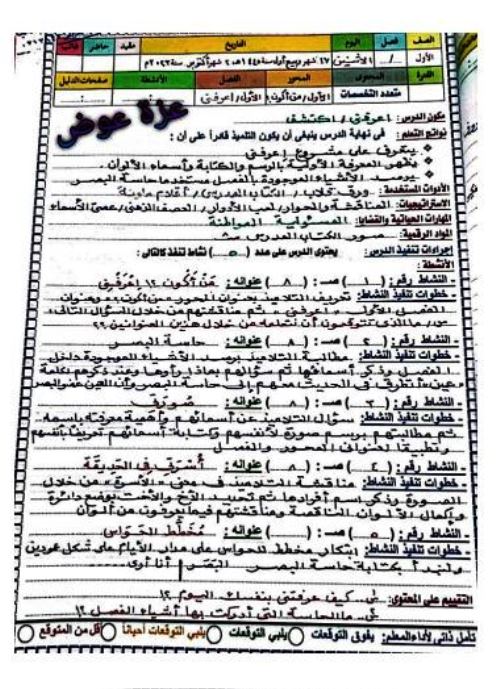 الصف فصل اليوم التاريخ مقيد حاضر غائب
الأول /١ الاثنين ١٧ شهر ربيع أول سنة ١٤٤٥هـ ٢ شهر أكتوبر سنة ٢٠٢٣م
الفترة المحتوى المحور الفصل الأنشطة صفحات الدليل
متعدد التخصصات الأول/من أكون؟ الأول/اعرفني
عزة عوض
مكون الدرس: اعرفني / اكتشف
نواتج التعلم: فى نهاية الدرس ينبغي أن يكون التلميذ قادراً على أن:
يتعرف على مشروع إعرفني
يظهر المعرفة الأولية بالرسم والكتابة وأسماء الألوان.
يرصد الأشياء الموجودة بالفصل مستخدما حاسة البصر
الأدوات المستخدمة: ورق قلاب / الكتاب المدرسي / أقلام ملونة
الاستراتيجيات: المناقشة والحوار / لعب الأدوار / العصف الذهني / عصي الأسماء
المهارات الحياتية والقضايا: المسئولية المواطنة
المواد الرقمية: صور الكتاب المدرسي
إجراءات تنفيذ الدرس: يحتوي الدرس على عدد (٥) نشاط تنفذ كالتالي:
الأنشطة:
- النشاط رقم: (١) صـ: (٨) عنوانه: مَنْ أَكُون ؟! اِعْرَفْنِي
- خطوات تنفيذ النشاط: تعريف التلاميذ بعنوان المحور "من أكون؟" وعنوان
الفصل الأول "اعرفني" ثم مناقشتهم من خلال السؤال التالى:
س/ ما الذى تتوقعون أن نتعلمه من خلال هذين العنوانين ؟؟
- النشاط رقم: (٢) صـ: (٨) عنوانه: حاسة البصر
- خطوات تنفيذ النشاط: مطالبة التلاميذ برصد الأشياء الموجودة داخل
الفصل وذكر أسمائها ثم سؤالهم بماذا رأوها وعند ذكرهم لكلمة
"عين" نتطرق فى الحديث معهم إلى حاسة البصر وأن العين عضو البصر
- النشاط رقم: (٣) صـ: (٨) عنوانه: صُورَتِي
خطوات تنفيذ النشاط: سؤال التلاميذ عن أسمائهم وأهمية معرفته باسمه
ثم مطالبتهم برسم صورة لأنفسهم وكتابة أسمائهم تعريفاً بأنفسهم
وتطبيقا لعنوانى المحور والفصل
- النشاط رقم: (٤) صـ: (٨) عنوانه: أُسْرَتِي فِي الْحَدِيقَة
خطوات تنفيذ النشاط: مناقشة التلاميذ فى معنى "الأسرة" من خلال
الصورة وذكر اسم أفرادها ثم تحديد الأخ والأخت بوضع دائرة
وإكمال الألوان الناقصة ومناقشتهم فيما يعرفون من ألوان
- النشاط رقم: (٥) صـ: (٨) عنوانه: مُخَطَّطُ الْحَوَاسِ
- خطوات تنفيذ النشاط: ابتكار مخطط للحواس على مدار الأيام على شكل عمودين
ولنبدأ بكتابة حاسة البصر البصر | أنا أرى
التقييم على المحتوى: س. كيف عرفتني بنفسك اليوم ؟!
س. ما الحاسة التى أدركت بها أشياء الفصل ؟!
تأمل ذاتى لأداء المعلم: يفوق التوقعات يلبي التوقعات يلبي التوقعات أحيانا أقل من المتوقع